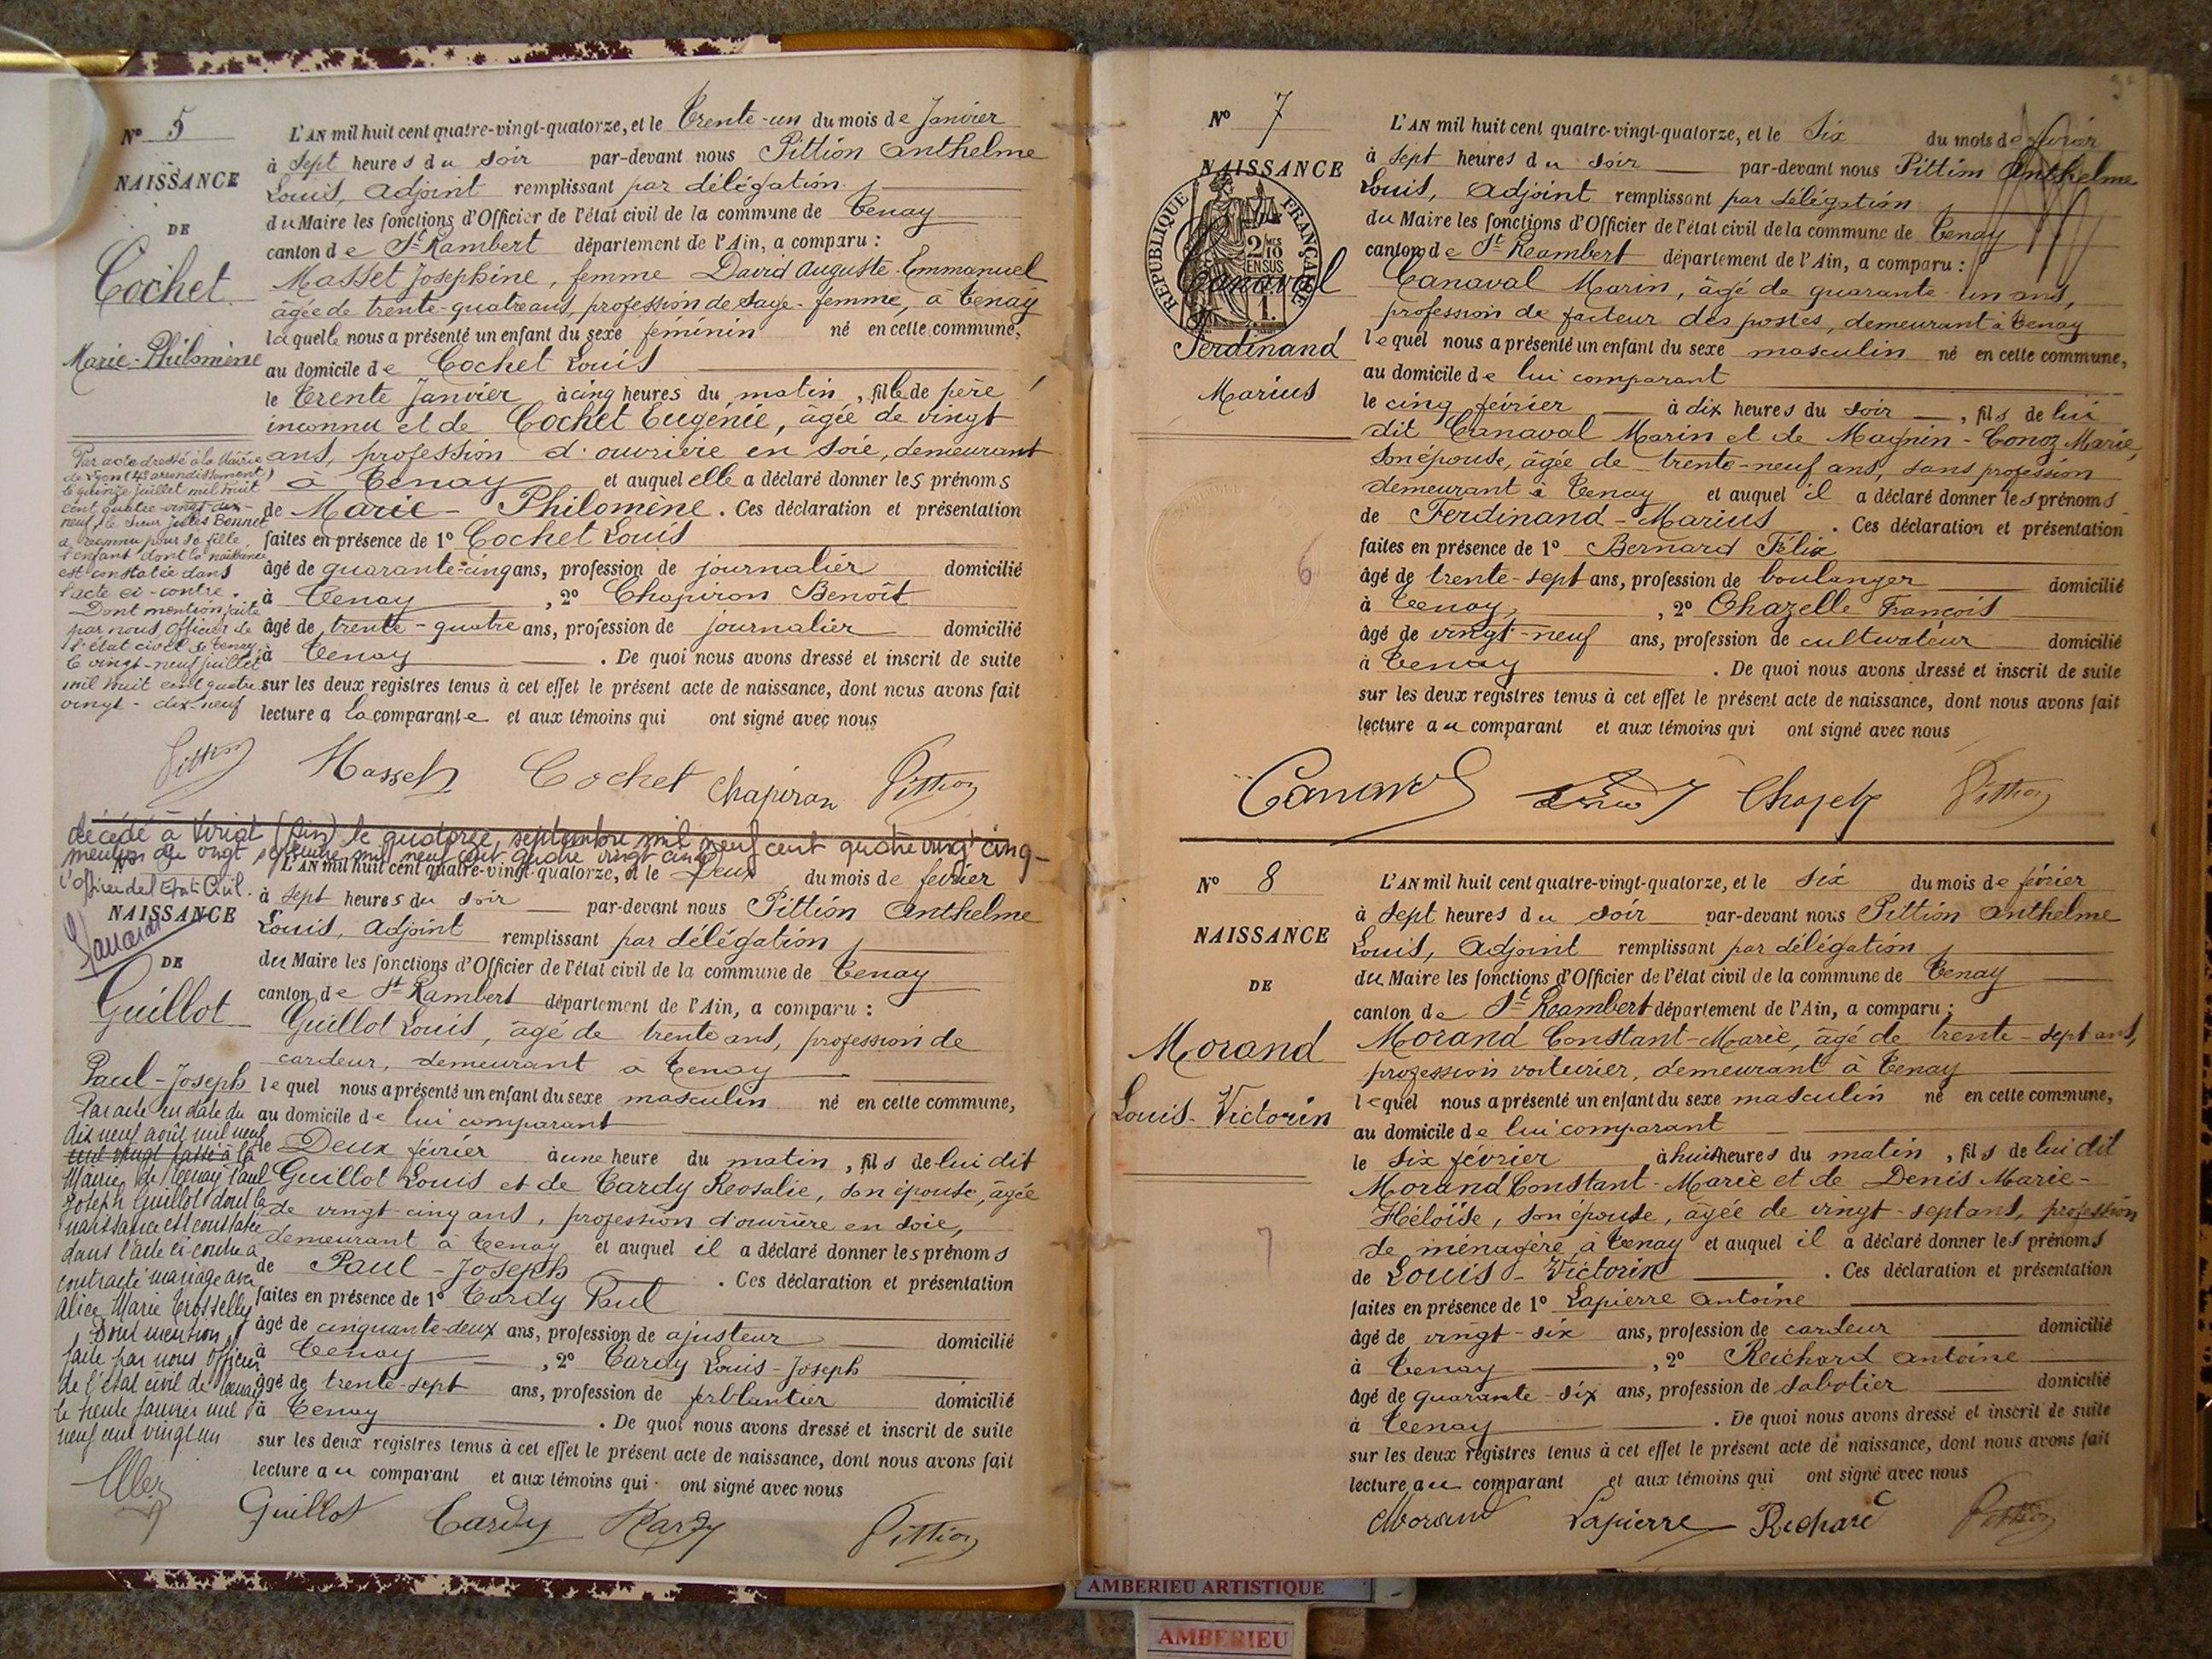 Nº 5
NAISSANCE
DE
Cochet
Marie-Philomène
L'AN mil huit cent quatre-vingt-quatorze, et le trente-un du mois de Janvier
à sept heures du soir par-devant nous Pittion Anthelme
Louis, Adjoint remplissant par délégation
du Maire les fonctions d'Officier de l'état civil de la commune de Tenay
canton de St Rambert département de l'Ain, a comparu :
Masset Josephine, femme David Auguste Emmanuel
âgée de trente-quatre ans, profession de sage-femme, à Tenay
laquelle nous a présenté un enfant du sexe féminin né en cette commune,
au domicile de Cochet Louis
le trente Janvier à cinq heures du matin, fille de père
inconnu et de Cochet Eugénie, âgée de vingt
ans, profession d'ouvrière en soie, demeurant
à Tenay et auquel elle a déclaré donner les prénoms
de Marie-Philomène. Ces déclaration et présentation
faites en présence de 1º Cochet Louis
âgé de quarante-cinq ans, profession de journalier domicilié
à Tenay, 2º Chapiron Benoît
âgé de trente-quatre ans, profession de journalier domicilié
à Tenay. De quoi nous avons dressé et inscrit de suite
sur les deux registres tenus à cet effet le présent acte de naissance, dont nous avons fait
lecture a la comparante et aux témoins qui ont signé avec nous
Par acte dressé à la Mairie
de Lyon (4e arrondissement)
le quinze juillet mil huit
cent quatre-vingt-dix-
neuf, le sieur Jules Bonnet
a reconnu pour sa fille,
l'enfant dont la naissance
est constatée dans
l'acte ci-contre.
Dont mention faite
par nous, Officier de
l'état civil de Tenay,
le vingt-neuf juillet
mil huit cent quatre
vingt-dix-neuf
Pittion Masset Cochet Chapiron Pittion
décédé à Viriat (Ain) le quatorze septembre mil neuf cent quatre vingt cinq-
mention du vingt septembre mil neuf cent quatre vingt cinq
l'officier de l'Etat Civil.
NAISSANCE
DE
Guillot
Paul-Joseph
L'AN mil huit cent quatre-vingt-quatorze, et le Deux du mois de février
à sept heures du soir par-devant nous Pittion Anthelme
Louis, Adjoint remplissant par délégation
du Maire les fonctions d'Officier de l'état civil de la commune de Tenay
canton de St Rambert département de l'Ain, a comparu :
Guillot Louis, âgé de trente ans, profession de
cardeur, demeurant à Tenay
lequel nous a présenté un enfant du sexe masculin né en cette commune,
au domicile de lui comparant
le Deux février à une heure du matin, fils de lui dit
Guillot Louis et de Tardy Rosalie, son épouse, âgée
de vingt-cinq ans, profession d'ouvrière en soie,
demeurant à Tenay et auquel il a déclaré donner les prénoms
de Paul-Joseph. Ces déclaration et présentation
faites en présence de 1º Tardy Paul
âgé de cinquante-deux ans, profession de ajusteur domicilié
à Tenay, 2º Tardy Louis-Joseph
âgé de trente-sept ans, profession de ferblantier domicilié
à Tenay. De quoi nous avons dressé et inscrit de suite
sur les deux registres tenus à cet effet le présent acte de naissance, dont nous avons fait
lecture au comparant et aux témoins qui ont signé avec nous
Par acte en date du
dix neuf août mil neuf
cent vingt passé à la
Mairie de Tenay Paul
Joseph Guillot dont la
naissance est constatée
dans l'acte ci-contre a
contracté mariage avec
Alice Marie Trosselly
Dont mention
faite par nous Officier
de l'état civil de Tenay
le trente Janvier mil
neuf cent vingt un
Guillot Tardy Tardy Pittion
Nº 7
NAISSANCE
REPUBLIQUE FRANÇAISE
2/10 EN SUS
Canaval
Ferdinand
Marius
L'AN mil huit cent quatre-vingt-quatorze, et le Six du mois de février
à sept heures du soir par-devant nous Pittion Anthelme
Louis, Adjoint remplissant par délégation
du Maire les fonctions d'Officier de l'état civil de la commune de Tenay
canton de St Rambert département de l'Ain, a comparu :
Canaval Marin, âgé de quarante-un ans,
profession de facteur des postes, demeurant à Tenay
lequel nous a présenté un enfant du sexe masculin né en cette commune,
au domicile de lui comparant
le cinq février à dix heures du soir, fils de lui
dit Canaval Marin et de Magnin-Conoz Marie,
son épouse, âgée de trente-neuf ans, sans profession
demeurant à Tenay et auquel il a déclaré donner les prénoms
de Ferdinand-Marius. Ces déclaration et présentation
faites en présence de 1º Bernard Félix
âgé de trente-sept ans, profession de boulanger domicilié
à Tenay, 2º Chazelle François
âgé de vingt-neuf ans, profession de cultivateur domicilié
à Tenay. De quoi nous avons dressé et inscrit de suite
sur les deux registres tenus à cet effet le présent acte de naissance, dont nous avons fait
lecture au comparant et aux témoins qui ont signé avec nous
6
Canaval Pittion
Nº 8
NAISSANCE
DE
Morand
Louis-Victorin
L'AN mil huit cent quatre-vingt-quatorze, et le six du mois de février
à sept heures du soir par-devant nous Pittion Anthelme
Louis, Adjoint remplissant par délégation
du Maire les fonctions d'Officier de l'état civil de la commune de Tenay
canton de St Rambert département de l'Ain, a comparu :
Morand Constant-Marie, âgé de trente-sept ans,
profession voiturier, demeurant à Tenay
lequel nous a présenté un enfant du sexe masculin né en cette commune,
au domicile de lui comparant
le six février à huit heures du matin, fils de lui dit
Morand Constant-Marie et de Denis Marie-
Héloïse, son épouse, âgée de vingt-sept ans, profession
de ménagère, à Tenay et auquel il a déclaré donner les prénoms
de Louis-Victorin. Ces déclaration et présentation
faites en présence de 1º Lapierre Antoine
âgé de vingt-six ans, profession de cardeur domicilié
à Tenay, 2º Reichard Antoine
âgé de quarante-six ans, profession de sabotier domicilié
à Tenay. De quoi nous avons dressé et inscrit de suite
sur les deux registres tenus à cet effet le présent acte de naissance, dont nous avons fait
lecture au comparant et aux témoins qui ont signé avec nous
7
Morand Lapierre Pittion
AMBERIEU ARTISTIQUE
AMBERIEU